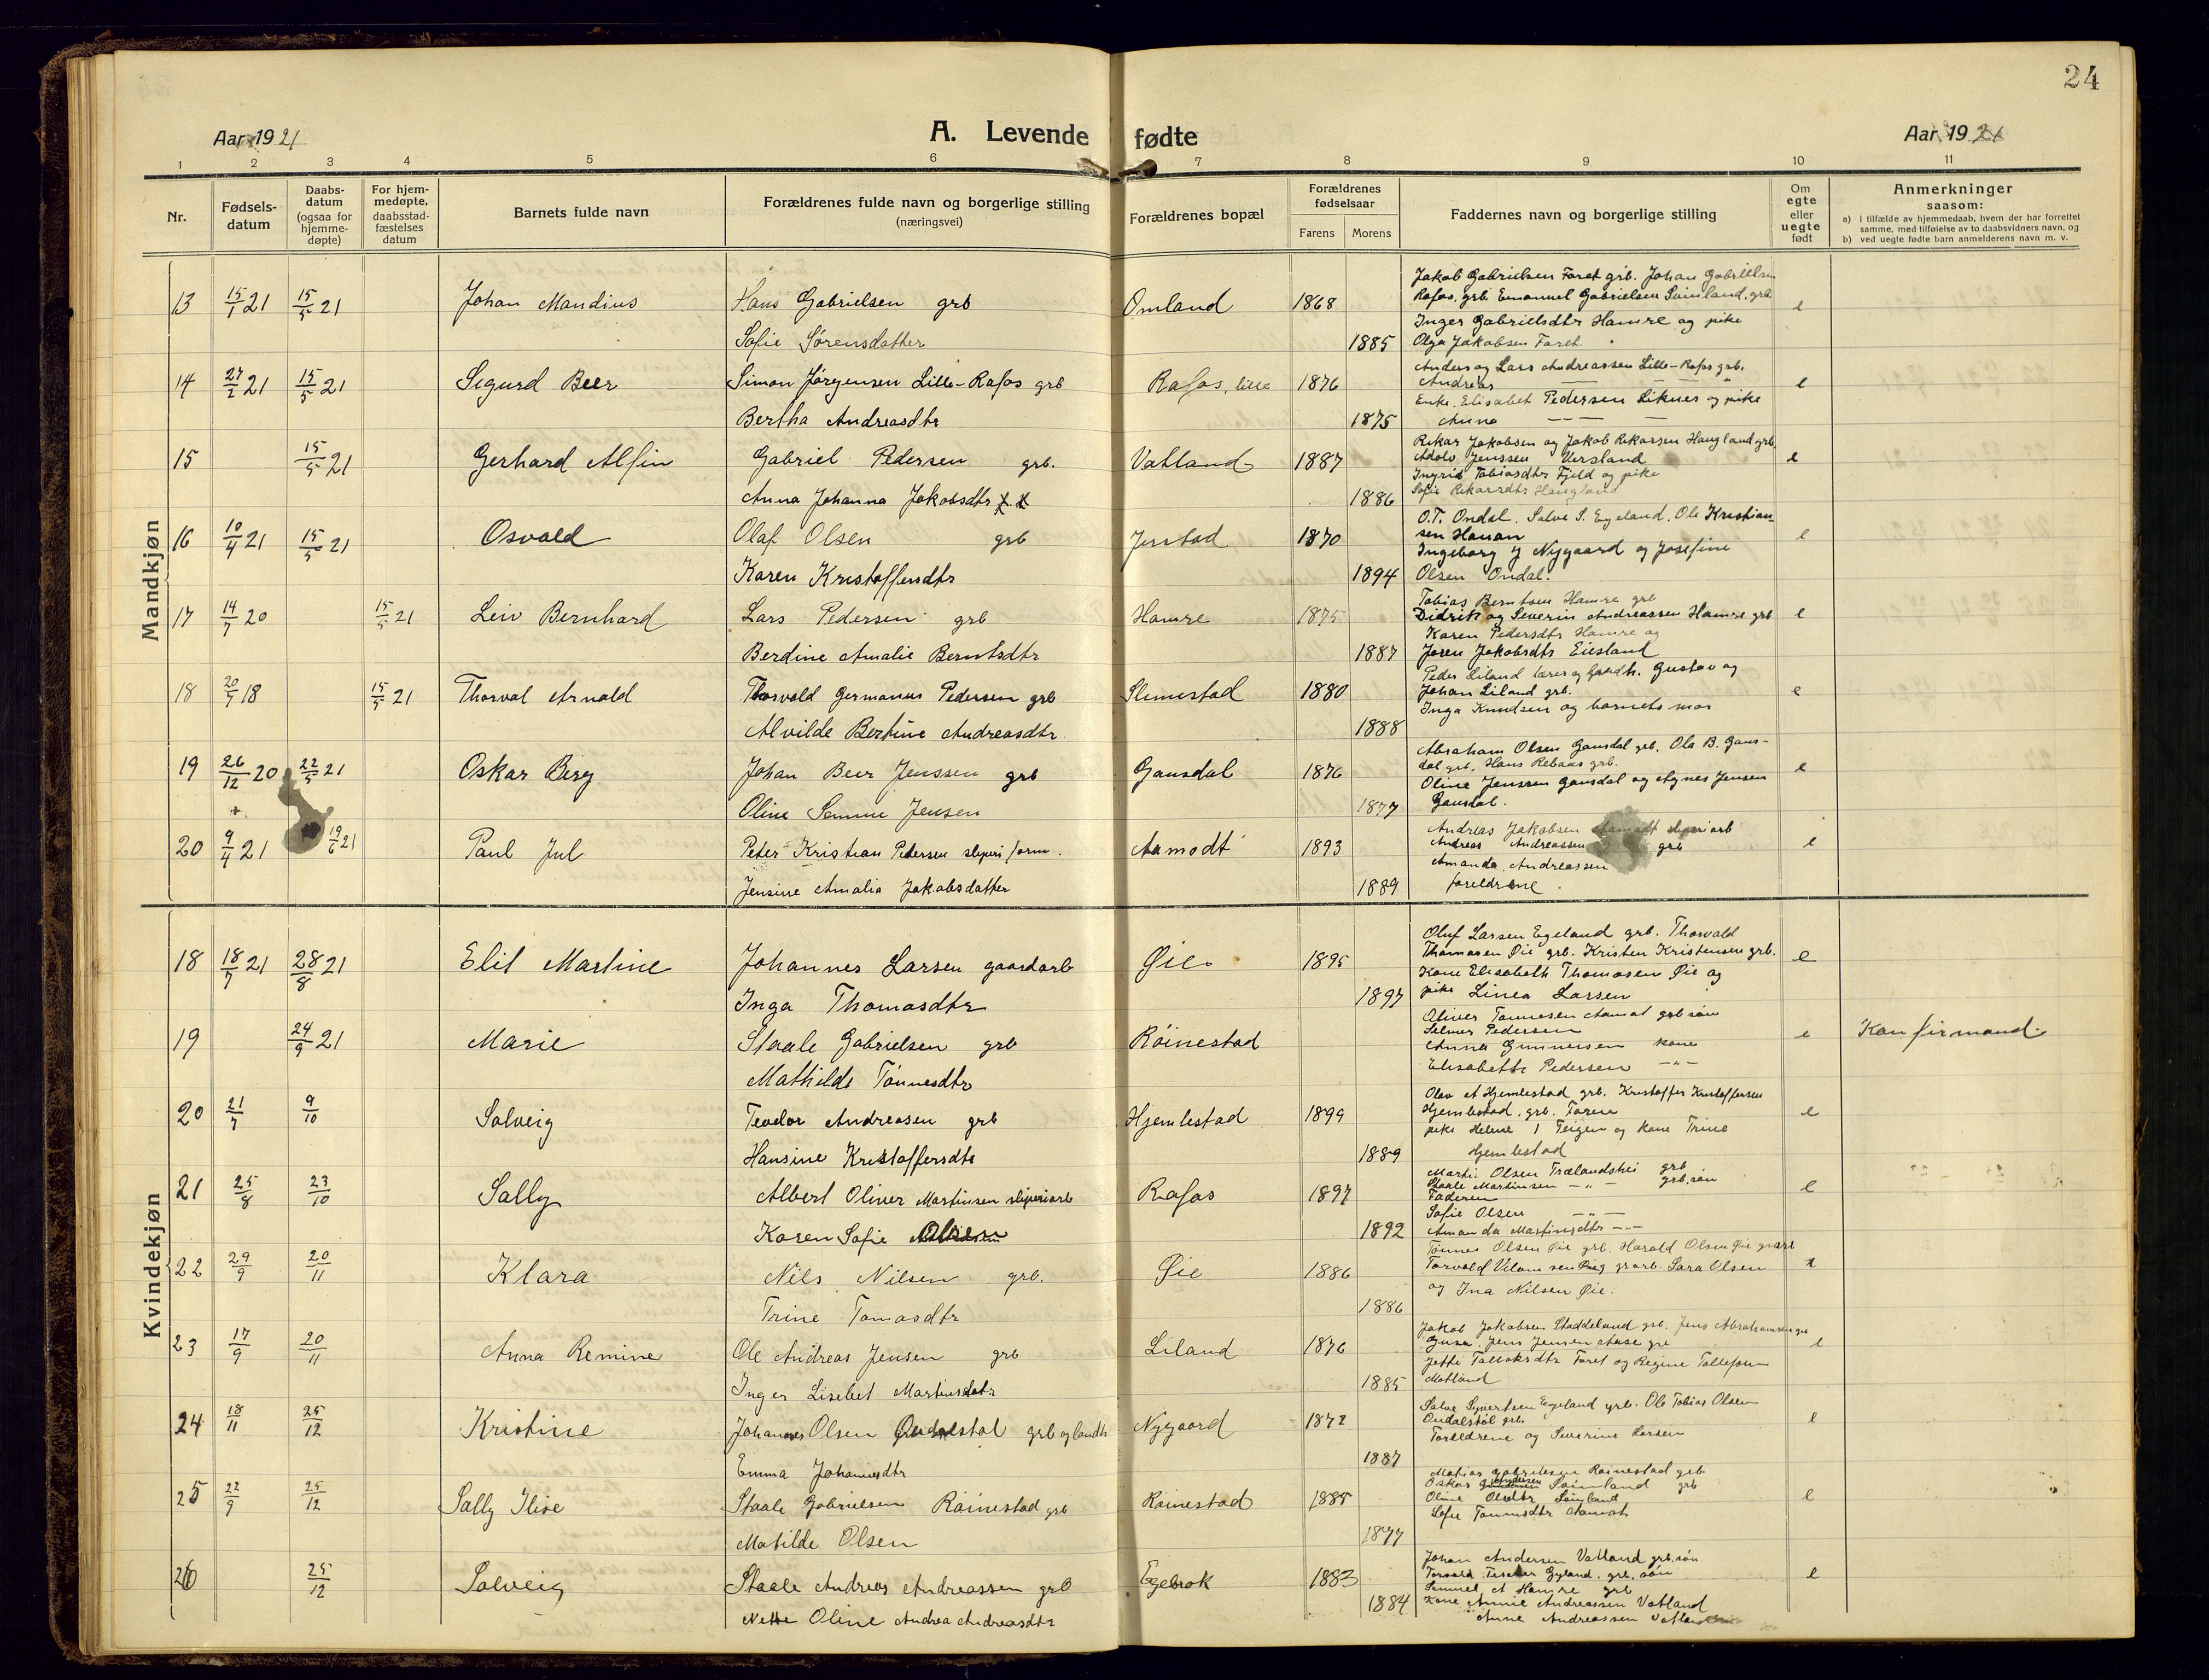 24
Aar 1921
A. Levende fødte
Aar 1921
1 2 3 4 5 6 7 8 9 10 11
Nr.
Fødsels-
datum
Daabs-
datum
(ogsaa for
hjemme-
døpte)
For hjem-
medøpte,
daabsstad-
fæstelses
datum
Barnets fulde navn
Forældrenes fulde navn og borgerlige stilling
(næringsvei)
Forældrenes bopæl
Forældrenes
fødselsaar
Farens Morens
Faddernes navn og borgerlige stilling
Om
egte
eller
uegte
født
Anmerkninger
saasom:
a) i tilfælde av hjemmedaab, hvem der har forrettet
samme, med tilføielse av to daabsvidners navn, og
b) ved uegte fødte barn anmelderens navn m. v.
Mandkjøn
13 15/1 21 15/5 21 Johan Mandius Hans Gabrielsen grb Omland 1868 e
Sofie Sørensdatter 1885
Jakob Gabrielsen Faret grb. Johan Gabrielsen
Rafos, grb. Emanuel Gabrielsen Sninland, grb
Inger Gabrielsdtr Hamre og pike
Olga Jakobsen Faret.
14 27/2 21 15/5 21 Sigurd Beer Simon Jørgensen Lille-Rafos grb Rafos, lille 1876 e
Bertha Andreasdtr 1875
Anders og Lars Andreassen Lille-Rafos grb.
Andreas — — "
Enke Elisabet Pedersen Liknes og pike
Anna — —
15 15/5 21 Gerhard Alfin Gabriel Pedersen grb. Vatland 1887 e
Anna Johanna Jakobsdtr 1886
Rikar Jakobsen og Jakob Rikarsen Haugland grb.
Adolv Jenssen Versland
Ingrid Tobiasdtr Fjeld og pike
Sofie Rikarsdtr Haugland
16 10/4 21 15/5 21 Osvald Olaf Olsen grb Jerstad 1870 e
Karen Kristoffersdtr 1894
O.T. Ondal. Salve S. Egeland. Ole Kristian-
sen Hauan
Ingeborg J Nygaard og Josefine
Olsen Ondal.
17 14/7 20 15/5 21 Leiv Bernhard Lars Pedersen grb Hamre 1875 e
Berdine Amalie Berntsdtr 1887
Tobias Berntsen Hamre grb
Didrik og Severin Andreassen Hamre grb
Karen Pedersdtr Hamre og
Joren Jakobsdtr Eiesland
18 20/7 18 15/5 21 Thorval Arnold Thorvald Germanus Pedersen grb Slimestad 1880 e
Alvilde Bertine Andreasdtr 1888
Peder Liland lærer og landh. Gustav og
Johan Liland grb.
Inga Knudsen og barnets mor
19 26/12 20 22/5 21 Oskar Birg Johan Beer Jenssen grb Gausdal 1876 e
Oline Semine Jensen 1877
Abraham Olsen Gausdal grb. Ole B. Gaus-
dal grb. Hans Rebaas grb.
Oline Jenssen Gausdal og Agnes Jensen
Gausdal.
20 9/4 21 19/6 21 Paul Jul Peter Kristian Pedersen sliperi form. Aamodt 1893 e
Jensine Amalia Jakobsdatter 1889
Andreas Jakobsen Aamodt sliperiarb
Andreas Andreassen grb
Amanda Andreassen
foreldrene.
Kvindekjøn
18 18/7 21 28/8 21 Elit Martine Johannes Larsen gaardarb Øie 1895 e
Inga Thomasdtr 1897
Oluf Larsen Egeland grb. Thorvald
Thomasen Øie grb. Kristen Kristensen grb.
Kone Elisabeth Thomasen Øie og
pike Linea Larsen
19 24/9 21 Marie Staale Gabrielsen grb Röinestad e Konfirmand
Mathilde Tönnesdtr
Oliver Tønnesen Aamot grb søn
Selmer Pedersen
Anna Gunnersen kone
Elisabeth Pedersen —"—
20 21/7 9/10 Solveig Teodor Andreasen grb Hjemlestad 1899 e
Hansine Kristoffersdtr 1889
Olav A Hjemlestad grb. Kristoffer Kristoffersen
Hjemlestad, grb. Toren
pike Helene I Teigen og kone Trine
Hjemlestad
21 25/8 23/10 Sally Albert Oliver Martinsen sliperiarb Rafos 1897 e
Karen Sofie Olsen 1892
Martin Olsen Trælandshei grb
Staale Martinsen —"— grb. søn
Faderen
Sofie Olsen —"—
Amanda Martinsdtr —"—
22 29/9 20/11 Klara Nils Nilsen grb. Øie 1886
Trine Tomasdtr 1886
Tönnes Olsen Øie grb. Harald Olsen Øie
Torvald grarb. Sara Olsen
og Ina Nilsen Øie.
23 17/9 20/11 Anna Remine Ole Andreas Jensen grb Liland 1876 e
Inger Lisebet Martinsdatr 1885
Jakob Jakobsen Staddeland grb. Jens Abrahamsen grb
Jens Jensen Aase grb
Jette Tallaksdtr Faret og Regine Tollefsen
Motland
24 18/11 25/12 Kristine Johannes Olsen Ondalstøl grb og landh Nygaard 1872 e
Emma Johannesdtr 1887
Salve Syvertsen Egeland grb. Ole Tobias Olsen
Ondalstøl grb.
Foreldrene og Severine Larsen
25 22/9 25/12 Sally Ilise Staale Gabrielsen Röinestad grb Röinestad 1885 e
Matilde Olsen 1877
Matias Gabrielsen Röinestad grb.
Oskar Andersen Sninland grb
Oline Olsdtr
Sofie Tønnesdtr Aamot
26 25/12 Solveig Staale Andreas Andreassen grb Egebrok 1883 e
Nette Oline Andrea Andreasdtr 1884
Johan Andersen Vatland grb. søn
Torvald Fischer Gyland, grb. søn
Samuel A Hamre grb
Kone Annie Andreassen Vatland
Anne Andreassen Vatland